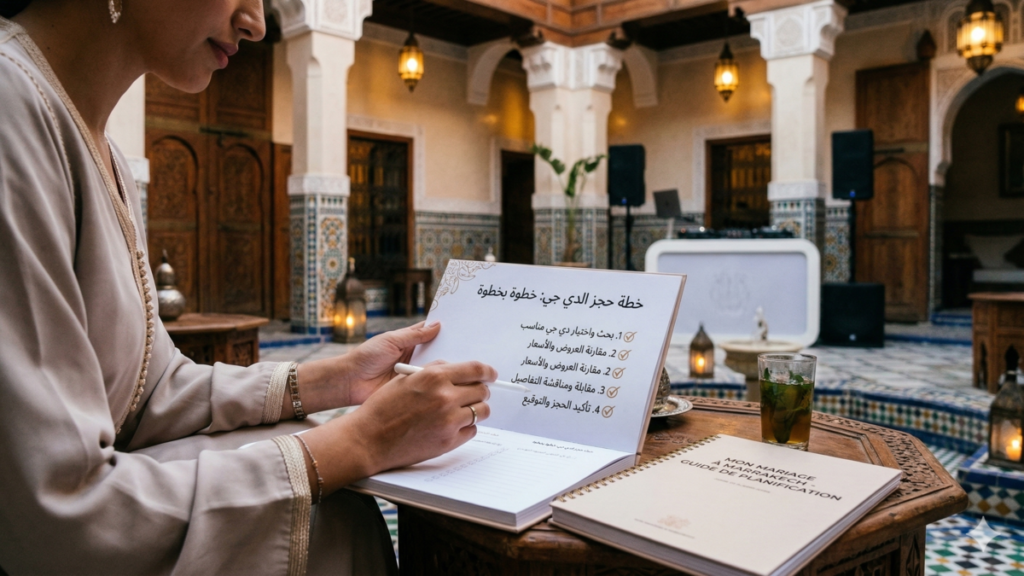 خطة حجز الدي جي: خطوة بخطوة
1. بحث واختيار دي جي مناسب
2. مقارنة العروض والأسعار
2. مقارنة العروض والأسعار
3. مقابلة ومناقشة التفاصيل
4. تأكيد الحجز والتوقيع
MON MARIAGE
À MARRAKECH -
GUIDE DE PLANIFICATION